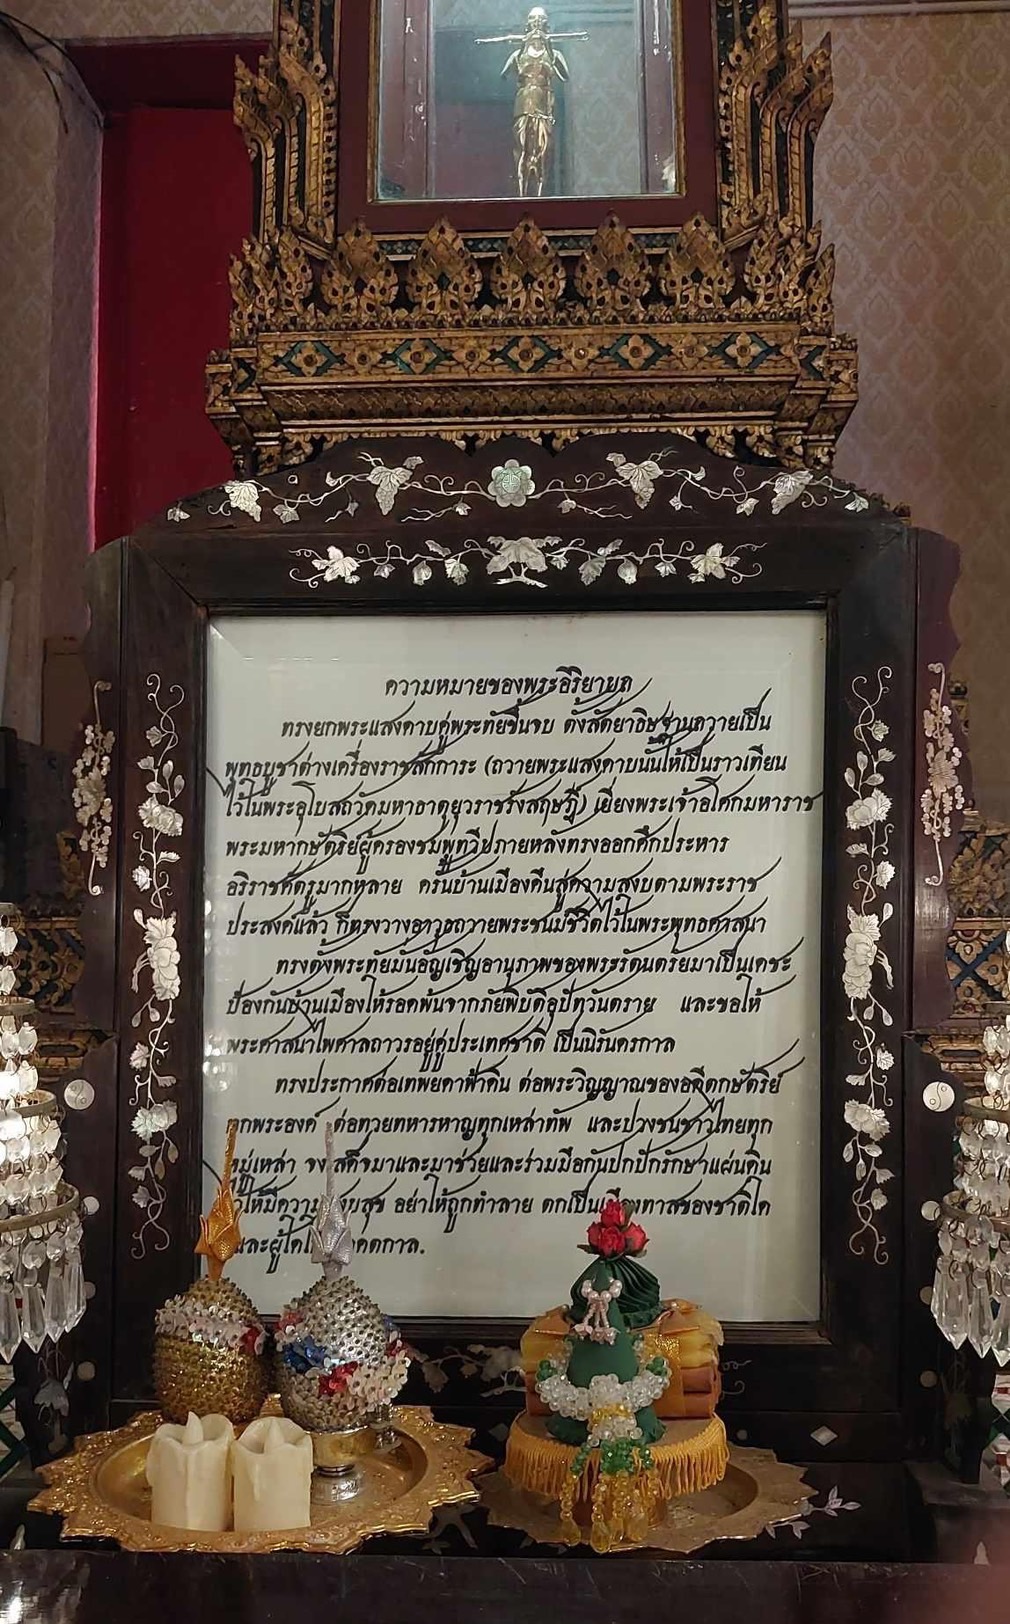 ความหมายของพระอิริยาบถ
ทรงยกพระแสงดาบคู่พระทัยขึ้นจบ ตั้งสัตยาธิษฐานถวายเป็น
พุทธบูชาต่างเครื่องราชสักการะ (ถวายพระแสงดาบนั้นให้เป็นราวเทียน
ไว้ในพระอุโบสถวัดมหาธาตุยุวราชรังสฤษฎิ์) เยี่ยงพระเจ้าอโศกมหาราช
พระมหากษัตริย์ผู้ครองชมพูทวีปภายหลังทรงออกศึกประหาร
อริราชศัตรูมากหลาย ครั้นบ้านเมืองคืนสู่ความสงบตามพระราช
ประสงค์แล้ว ก็ทรงวางอาวุธถวายพระชนม์ชีวิตไว้ในพระพุทธศาสนา
ทรงตั้งพระทัยมั่นอัญเชิญอานุภาพของพระรัตนตรัยมาเป็นเดชะ
ป้องกันบ้านเมืองให้รอดพ้นจากภัยพิบัติอุปัทวันตราย และขอให้
พระศาสนาไพศาลถาวรอยู่คู่ประเทศชาติ เป็นนิรันดรกาล
ทรงประกาศต่อเทพยดาฟ้าดิน ต่อพระวิญญาณของอดีตกษัตริย์
ทุกพระองค์ ต่อทวยทหารหาญทุกเหล่าทัพ และปวงชนชาวไทยทุก
หมู่เหล่า จงเสด็จมาและมาช่วยและร่วมมือกันปกปักรักษาแผ่นดิน
ให้มีความสงบสุข อย่าให้ถูกทำลาย ตกเป็นเมืองทาสของชาติใด
และผู้ใด